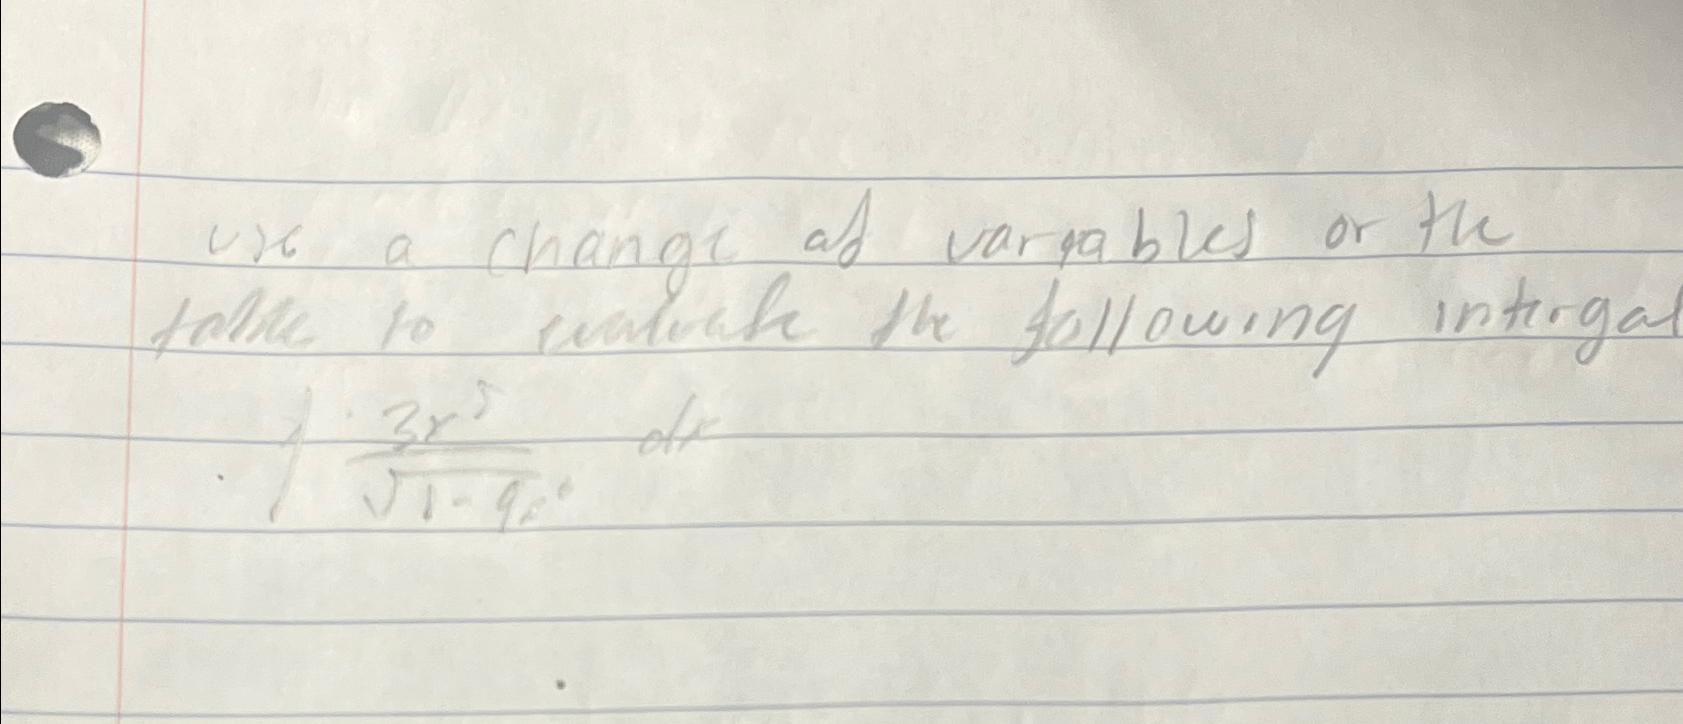 use a change of variables or the
table to evaluate the following intergal
∫ 3x⁵ / √1-9x⁶ dx